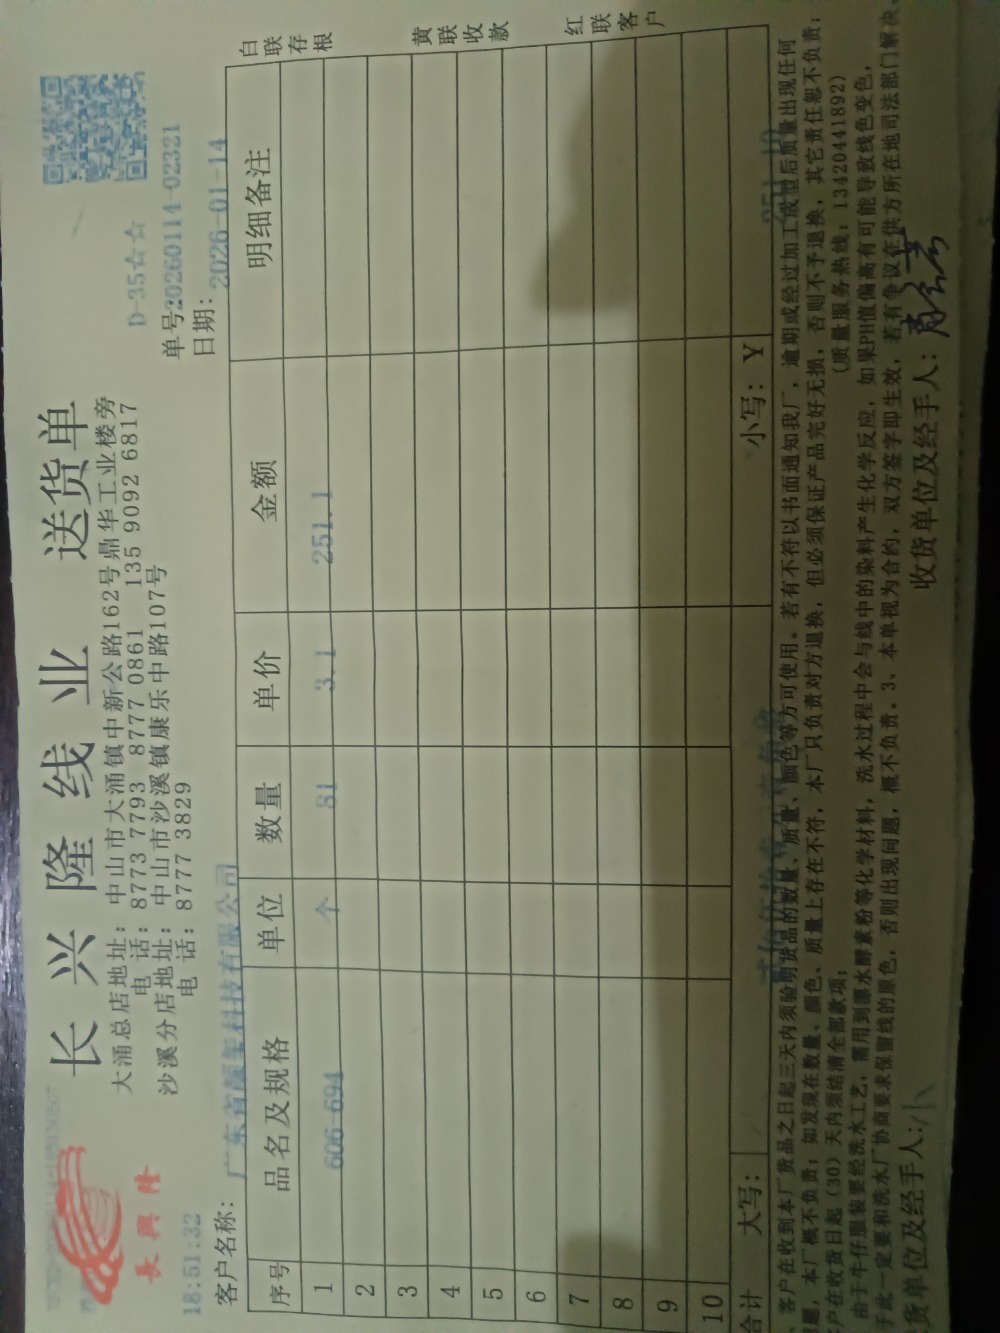 長興隆
18:51:32
长兴隆线业 送货单
D-35☆☆
大涌总店地址：中山市大涌镇中新公路162号鼎华工业楼旁
电 话：8773 7793 8777 0861 135 9092 6817
沙溪分店地址：中山市沙溪镇康乐中路107号
电 话：8777 3829
单号:20260114-02321
日期：2026-01-14
客户名称：广东省靓玺科技有限公司
序号 品名及规格 单位 数量 单价 金额 明细备注
1 606 694 个 81 3.1 251.1
2
3
4
5
6
7
8
9
10
合计 大写： 小写：Y 251.10
白联存根
黄联收款
红联客户
客户在收到本厂货品之日起三天内须验明货品的数量、质量、颜色等方可使用。若有不符以书面通知我厂，逾期或经过加工成型后质量出现任何
题，本厂概不负责；如发现在数量、颜色、质量上存在不符，本厂只负责对方退换，但必须保证产品完好无损，否则不予退换，其它责任恕不负责；
户在收货日起（30）天内须结清全部款项； （质量服务热线：13420441892）
由于牛仔服装要经洗水工艺，需用到漂水酵素粉等化学材料，洗水过程中会与线中的染料产生化学反应，如果PH值偏高有可能导致线色变色，
于此一定要和洗水厂协商要求保留线的原色，否则出现问题，概不负责。3、本单视为合约，双方签字即生效，若有争议在供方所在地司法部门解决。
货单位及经手人：小 收货单位及经手人：